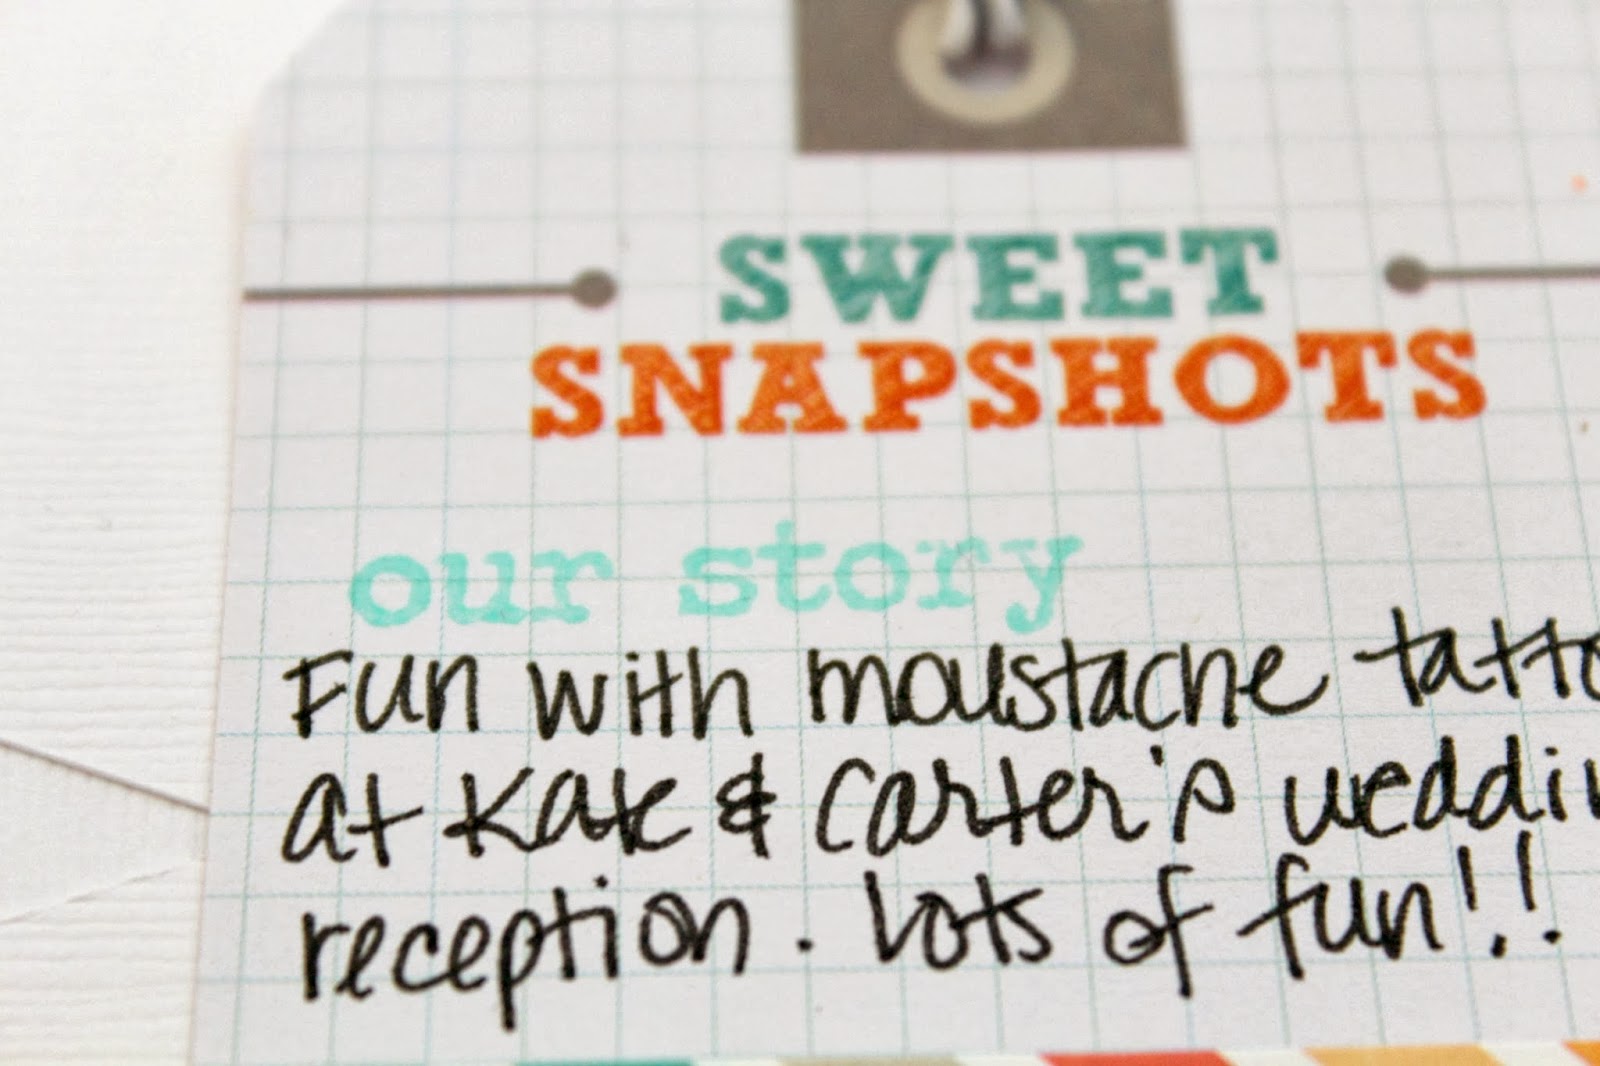 SWEET
SNAPSHOTS
our story
Fun with moustache tatto
at Kate & Carter's weddin
reception. Lots of fun!!